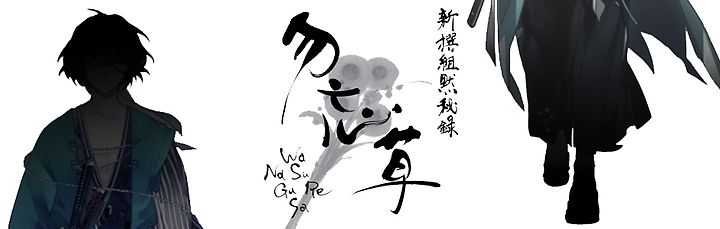 新撰組黙秘録
勿忘草
Wa
Na Su
Gu Re
Sa